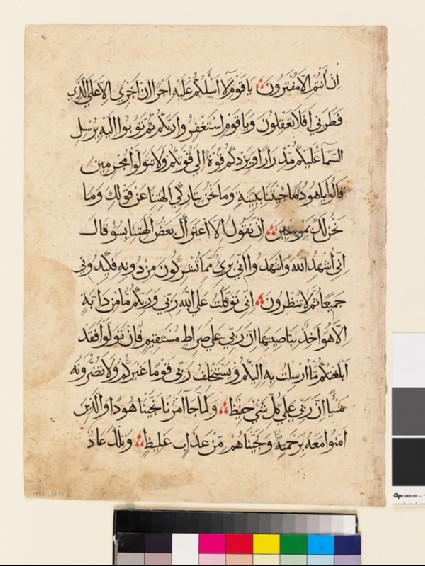 ان انتم الا مفترون يا قوم لا اسئلكم عليه اجرا ان اجري الا على الذي
فطرني افلا تعقلون ويا قوم استغفروا ربكم ثم توبوا اليه يرسل
السما عليكم مدرارا ويزدكم قوة الى قوتكم ولا تتولوا مجرمين
قالوا يا هود ما جئتنا ببينة وما نحن بتاركي الهتنا عن قولك وما
نحن لك بمومنين ان نقول الا اعتراك بعض الهتنا بسو قال
اني اشهد الله واشهدوا اني بري مما تشركون من دونه فكيدوني
جميعا ثم لا تنظرون اني توكلت على الله ربي وربكم ما من دابة
الا هو اخذ بناصيتها ان ربي على صراط مستقيم فان تولوا فقد
ابلغتكم ما ارسلت به اليكم ويستخلف ربي قوما غيركم ولا تضرونه
شيا ان ربي على كل شي حفيظ ولما جا امرنا نجينا هودا والذين
امنوا معه برحمة ونجيناهم من عذاب غليظ وتلك عاد